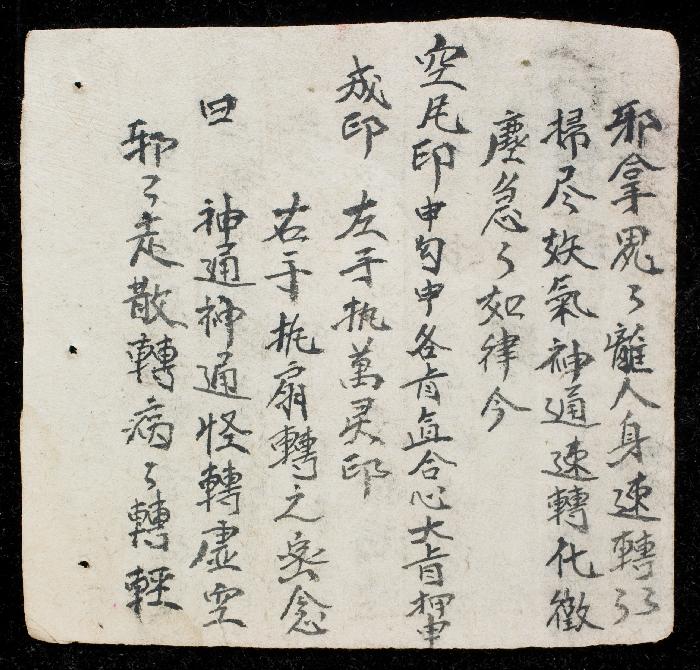 邪拿鬼〻離人身速轉〻
掃尽妖氣神通速轉化微
塵急〻如律令
空尾印中勾中各肯直合心大肯押中
戍印 左手执萬灵印
右手扥扇轉之密念
曰 神通神通怪轉虛空
邪〻走散轉病〻轉輕